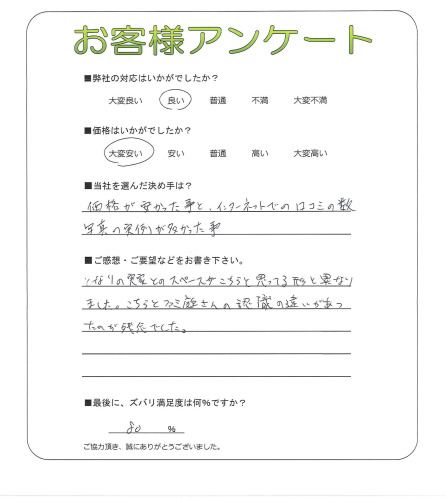 お客様アンケート
■弊社の対応はいかがでしたか？
大変良い 良い 普通 不満 大変不満
■価格はいかがでしたか？
大変安い 安い 普通 高い 大変高い
■当社を選んだ決め手は？
価格が安かった事と、インターネットでの口コミの数
写真の実例が多かった事
■ご感想・ご要望などをお書き下さい。
となりの家とのスペースがこちらと思ってる形と異なり
ました。こちらとファミ庭さんの認識の違いがあっ
たのが残念でした。
■最後に、ズバリ満足度は何％ですか？
80 %
ご協力頂き、誠にありがとうございました。